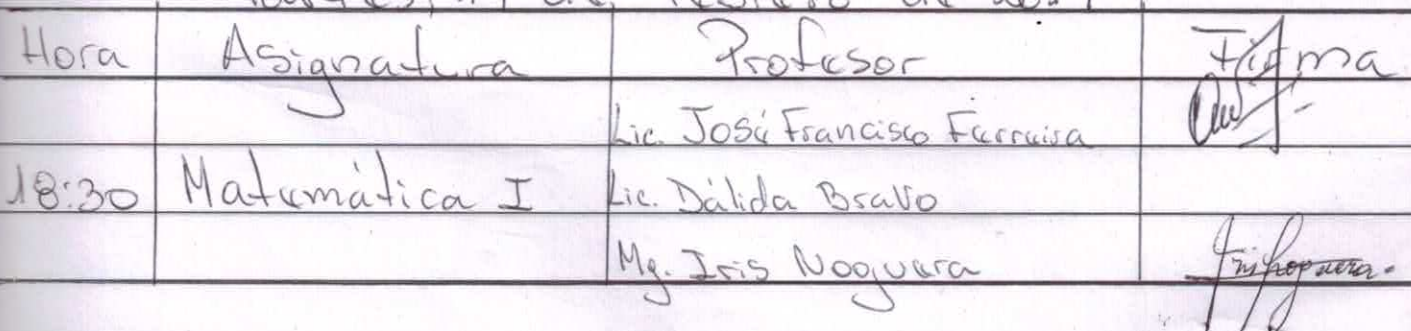 Hora Asignatura Profesor Firma
Lic. José Francisco Ferreira
18:30 Matemática I Lic. Dálida Bravo
Mg. Iris Noguera